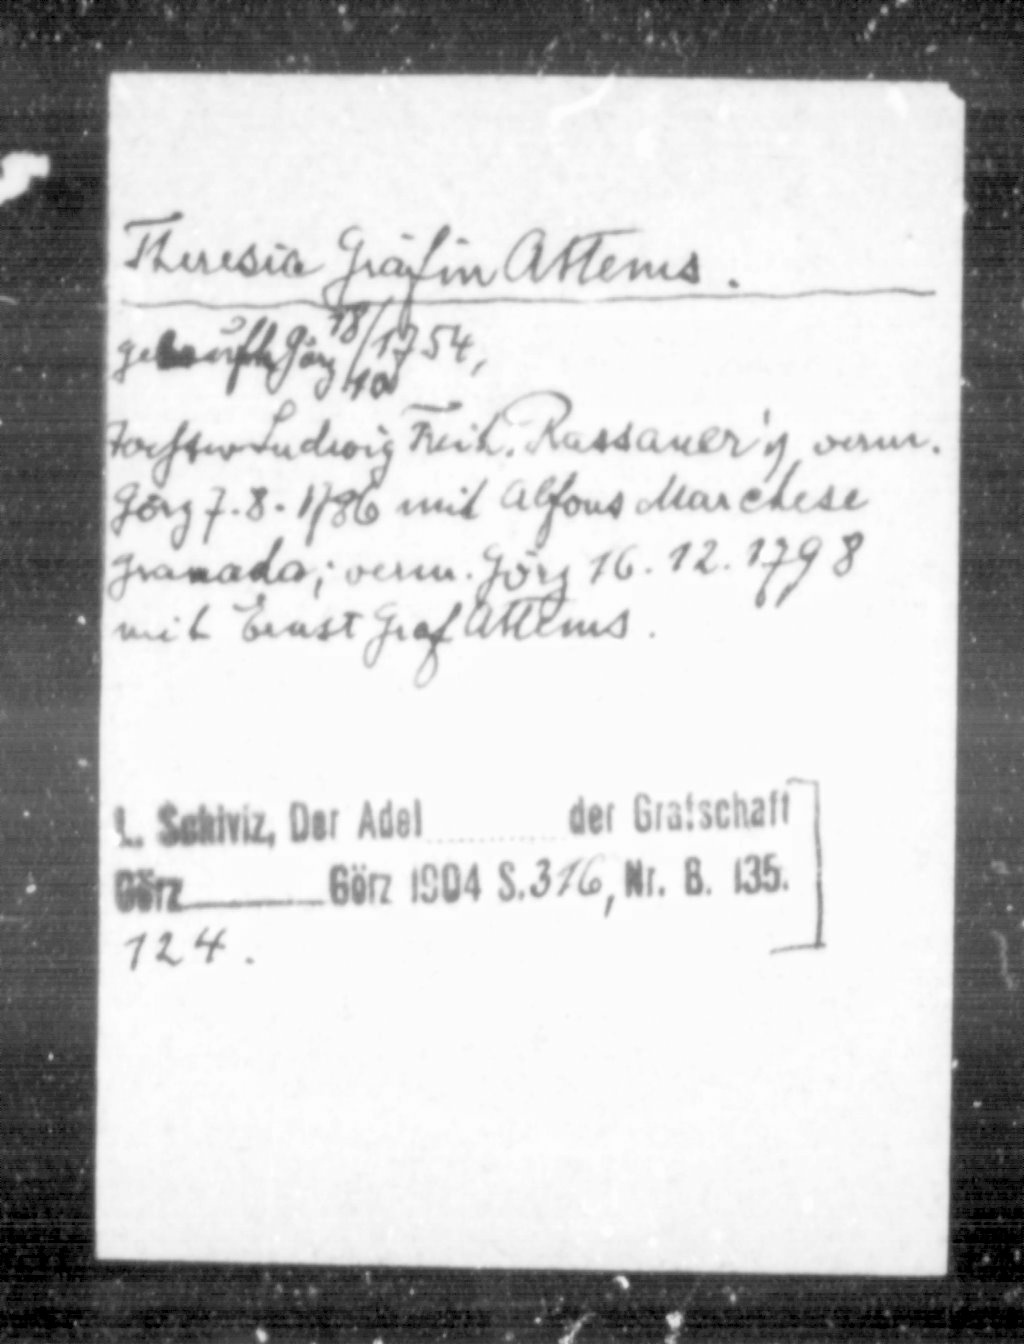 Theresia Gräfin Attems.
getauft Görz 18/10 1754,
Tochter Ludwig Freih. Rassauer's, verm.
Görz 7.8.1786 mit Alfons Marchese
Granada; verm. Görz 16.12.1798
mit Ernst Graf Attems.
L. Schiviz, Der Adel .......... der Grafschaft
Görz ______ Görz 1904 S. 316, Nr. B. 135.
124.